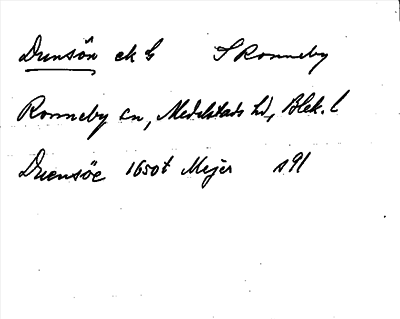 Drensön ek G S Ronneby
Ronneby sn, Medelstads hd, Blek. l
Drensöe 1650t Meijer s 91